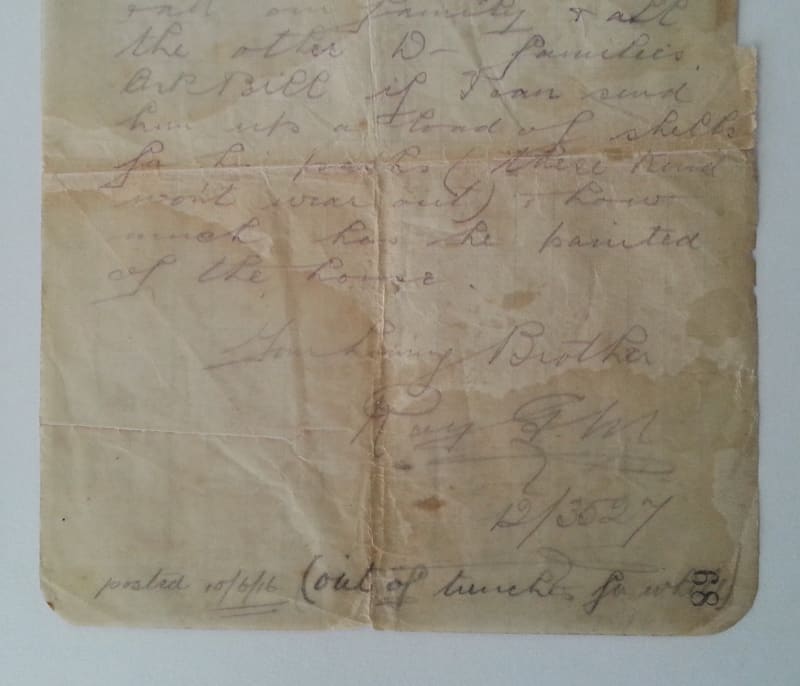 our family & all
the other D- families.
Ask Bill if I can send
him up a load of shells
for his paths (these kind
won't wear out) & how
much has he painted
of the house.
Your loving Brother
Ray G. M
12/3527
posted 10/6/16 (out of trenches for while)
89